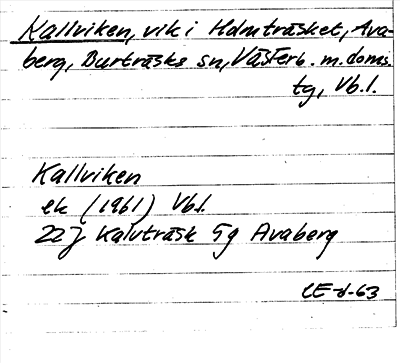 Kallviken, vik i Holmträsket, Ava-
berg, Burträsks sn, Västerb. m. doms.
tg, Vb.l.
Kallviken
ek (1961) Vb.l.
22J Kalvträsk 5g Avaberg
CE-d-63